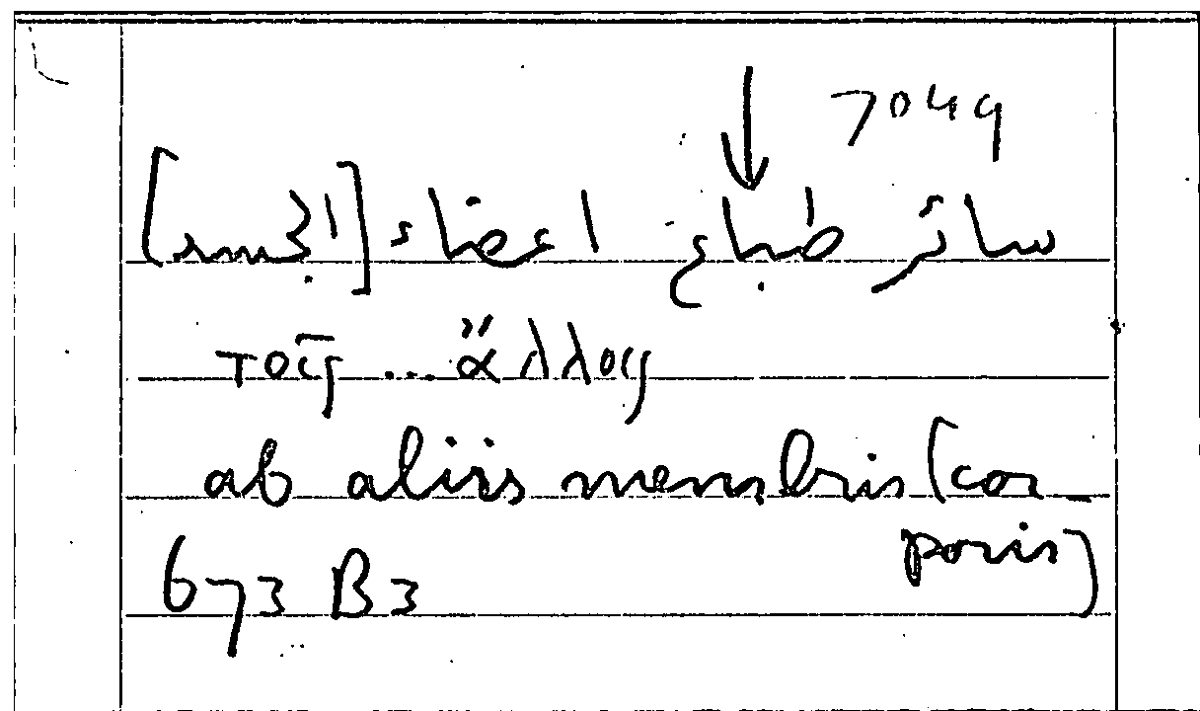 7049
سائر طباع اعضاء [الجسد]
τοῖς ... ἄλλοις
ab aliis membris (cor-
poris)
673 B3